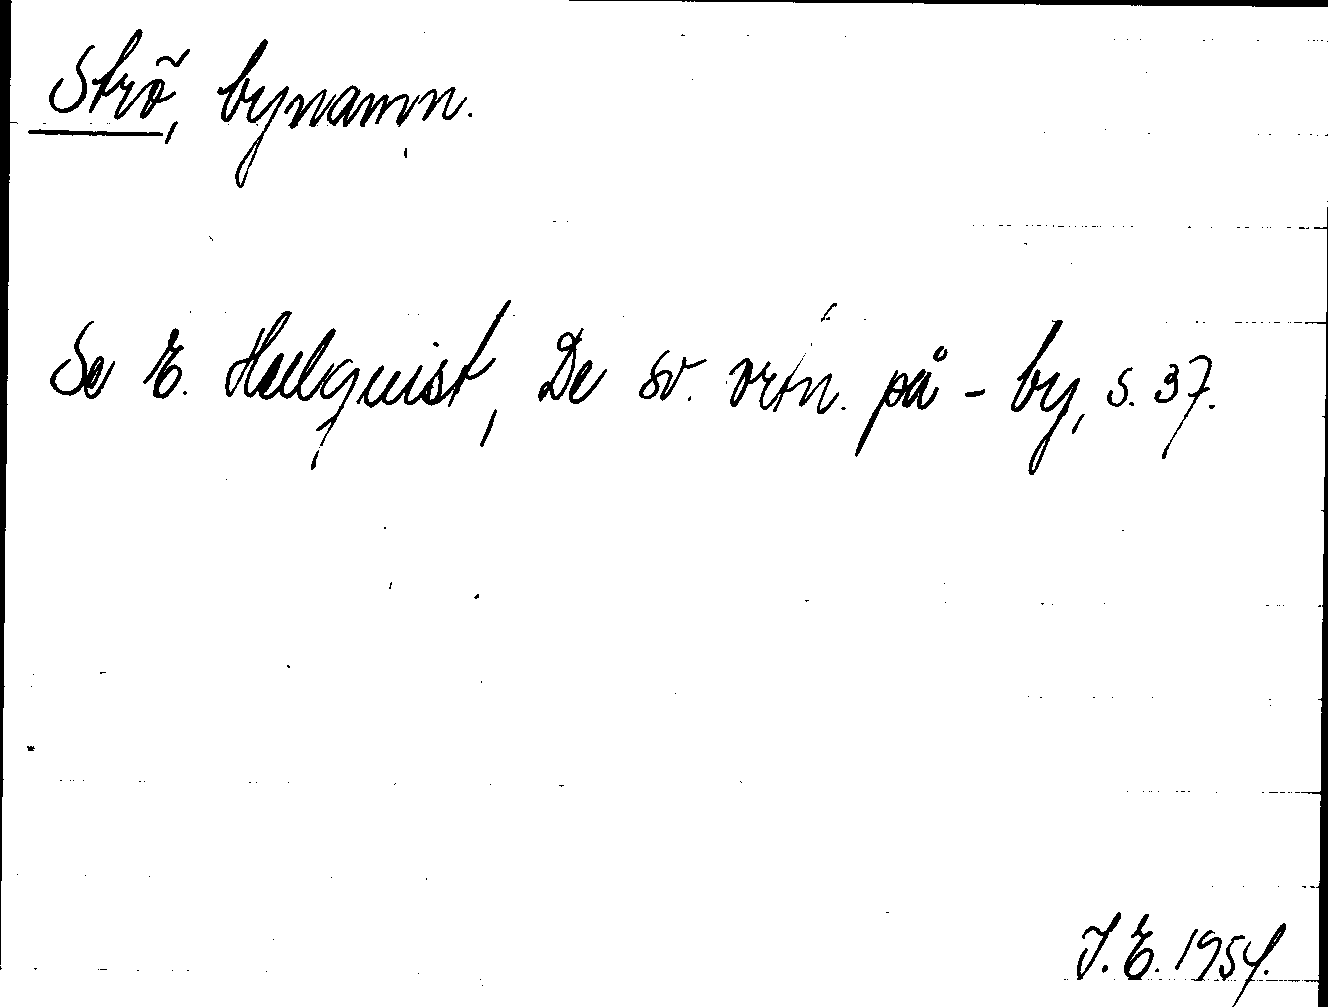 Strö, bynamn.
Se E. Hellquist, De sv. ortn. på -by, s. 37.
J. E. 1954.